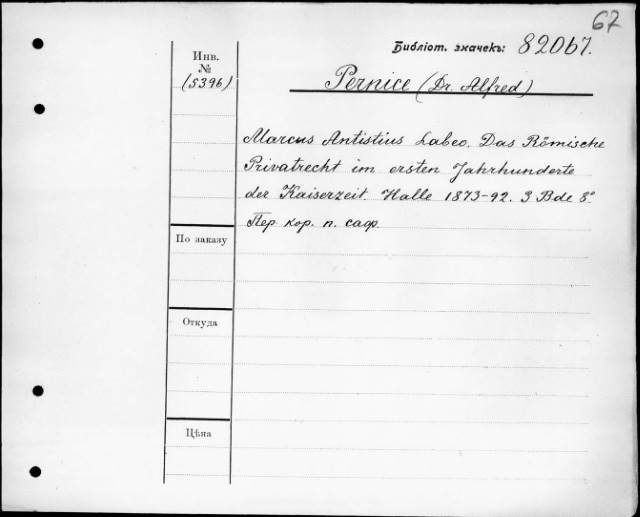 67
Библіот. значекъ: 82067.
Инв.
№
(5396)
Pernice (Dr. Alfred)
Marcus Antistius Labeo. Das Römische
Privatrecht im ersten Jahrhunderte
der Kaiserzeit. Halle 1873-92. 3 Bde 8°
Пер. кор. п. саф.
По заказу
Откуда
Цѣна